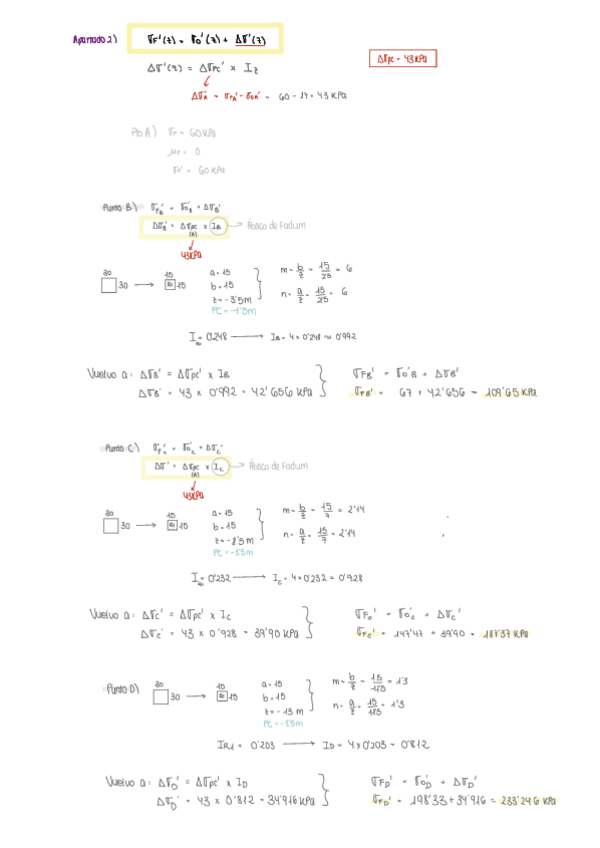 Apartado 2) σF'(z) = σ0'(z) + Δσ'(z)
Δσpc = 43 KPa
Δσ'(z) = Δσpc' x Iz
ΔσA = σFA' - σ0A' = 60 - 17 = 43 KPa
Pto A) σF = 60 KPa
μF = 0
σF' = 60 KPa
Punto B) σFB' = σ0B' + ΔσB'
ΔσB' = Δσpc x IB → Ábaco de Fadum
(A)
43 KPa
30 30 → 15 R1 15
a = 15
b = 15
z = -3'5m
PC = -1'5m
m = b/z = 15/2'5 = 6
n = a/z = 15/2'5 = 6
I = 0'248 → IB = 4 x 0'248 = 0'992
Vuelvo a: ΔσB' = Δσpc' x IB
ΔσB' = 43 x 0'992 = 42'656 KPa
σFB' = σ0'B + ΔσB'
σFB' = 67 + 42'656 = 109'65 KPa
Punto C) σFC' = σ0C' + ΔσC'
Δσ' = Δσpc x IC → Ábaco de Fadum
(A)
43 KPa
30 30 → 15 R1 15
a = 15
b = 15
z = -8'5 m
PC = -1'5m
m = b/z = 15/7 = 2'14
n = a/z = 15/7 = 2'14
I = 0'232 → IC = 4 x 0'232 = 0'928
Vuelvo a: ΔσC' = Δσpc' x IC
ΔσC' = 43 x 0'928 = 39'90 KPa
σFC' = σ0'C + ΔσC'
σFC' = 147'47 + 39'90 = 187'37 KPa
Punto D) 30 30 → 15 R1 15
a = 15
b = 15
z = -13 m
PC = -1'5m
m = b/z = 15/11'5 = 1'3
n = a/z = 15/11'5 = 1'3
IR1 = 0'203 → ID = 4 x 0'203 = 0'812
Vuelvo a: ΔσD' = Δσpc' x ID
ΔσD' = 43 x 0'812 = 34'916 KPa
σFD' = σ0'D + ΔσD'
σFD' = 198'33 + 34'916 = 233'246 KPa